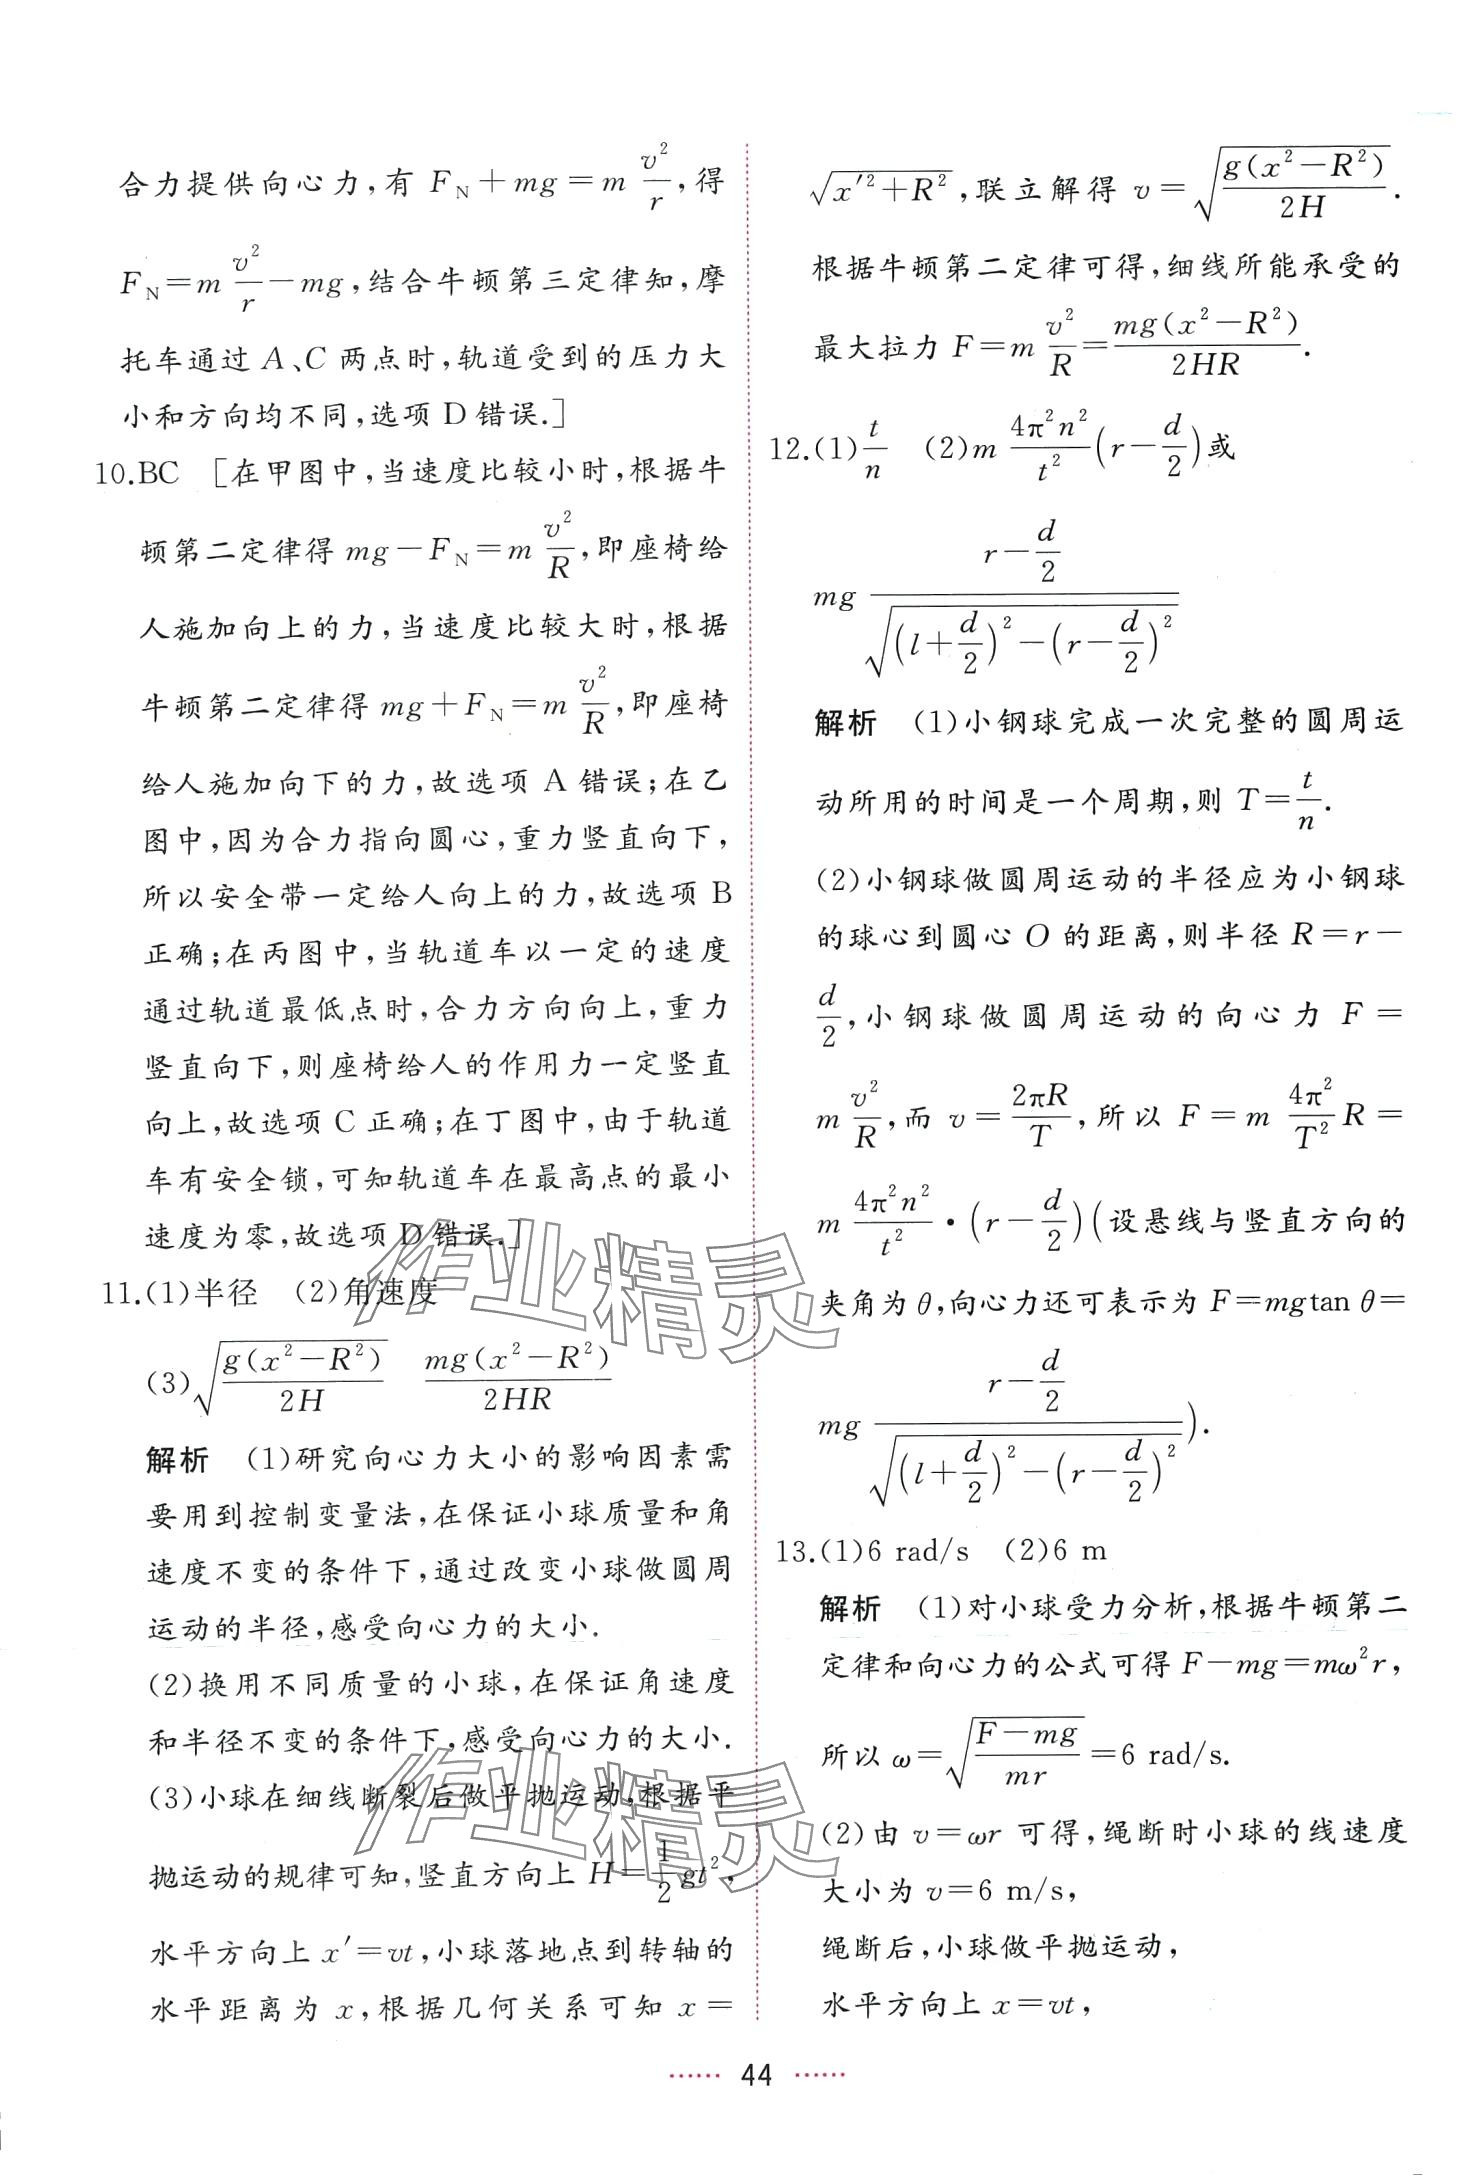 合力提供向心力,有 F_N+mg=m v²/r,得
F_N=m v²/r-mg,结合牛顿第三定律知,摩
托车通过 A、C 两点时,轨道受到的压力大
小和方向均不同,选项 D 错误.]
10.BC [在甲图中,当速度比较小时,根据牛
顿第二定律得 mg-F_N=m v²/R,即座椅给
人施加向上的力,当速度比较大时,根据
牛顿第二定律得 mg+F_N=m v²/R,即座椅
给人施加向下的力,故选项 A 错误;在乙
图中,因为合力指向圆心,重力竖直向下,
所以安全带一定给人向上的力,故选项 B
正确;在丙图中,当轨道车以一定的速度
通过轨道最低点时,合力方向向上,重力
竖直向下,则座椅给人的作用力一定竖直
向上,故选项 C 正确;在丁图中,由于轨道
车有安全锁,可知轨道车在最高点的最小
速度为零,故选项 D 错误.]
11.(1)半径 (2)角速度
(3)√(g(x²-R²)/2H) mg(x²-R²)/2HR
解析 (1)研究向心力大小的影响因素需
要用到控制变量法,在保证小球质量和角
速度不变的条件下,通过改变小球做圆周
运动的半径,感受向心力的大小.
(2)换用不同质量的小球,在保证角速度
和半径不变的条件下,感受向心力的大小.
(3)小球在细线断裂后做平抛运动,根据平
抛运动的规律可知,竖直方向上 H=1/2 gt²,
水平方向上 x′=vt,小球落地点到转轴的
水平距离为 x,根据几何关系可知 x=
√(x′²+R²),联立解得 v=√(g(x²-R²)/2H).
根据牛顿第二定律可得,细线所能承受的
最大拉力 F=m v²/R=mg(x²-R²)/2HR.
12.(1)t/n (2)m 4π²n²/t² (r-d/2)或
mg (r-d/2)/√((l+d/2)²-(r-d/2)²)
解析 (1)小钢球完成一次完整的圆周运
动所用的时间是一个周期,则 T=t/n.
(2)小钢球做圆周运动的半径应为小钢球
的球心到圆心 O 的距离,则半径 R=r-
d/2,小钢球做圆周运动的向心力 F=
m v²/R,而 v=2πR/T,所以 F=m 4π²/T² R=
m 4π²n²/t²·(r-d/2)(设悬线与竖直方向的
夹角为 θ,向心力还可表示为 F=mgtan θ=
mg (r-d/2)/√((l+d/2)²-(r-d/2)²)).
13.(1)6 rad/s (2)6 m
解析 (1)对小球受力分析,根据牛顿第二
定律和向心力的公式可得 F-mg=mω²r,
所以 ω=√((F-mg)/mr)=6 rad/s.
(2)由 v=ωr 可得,绳断时小球的线速度
大小为 v=6 m/s,
绳断后,小球做平抛运动,
水平方向上 x=vt,
44
作业精灵
作业精灵